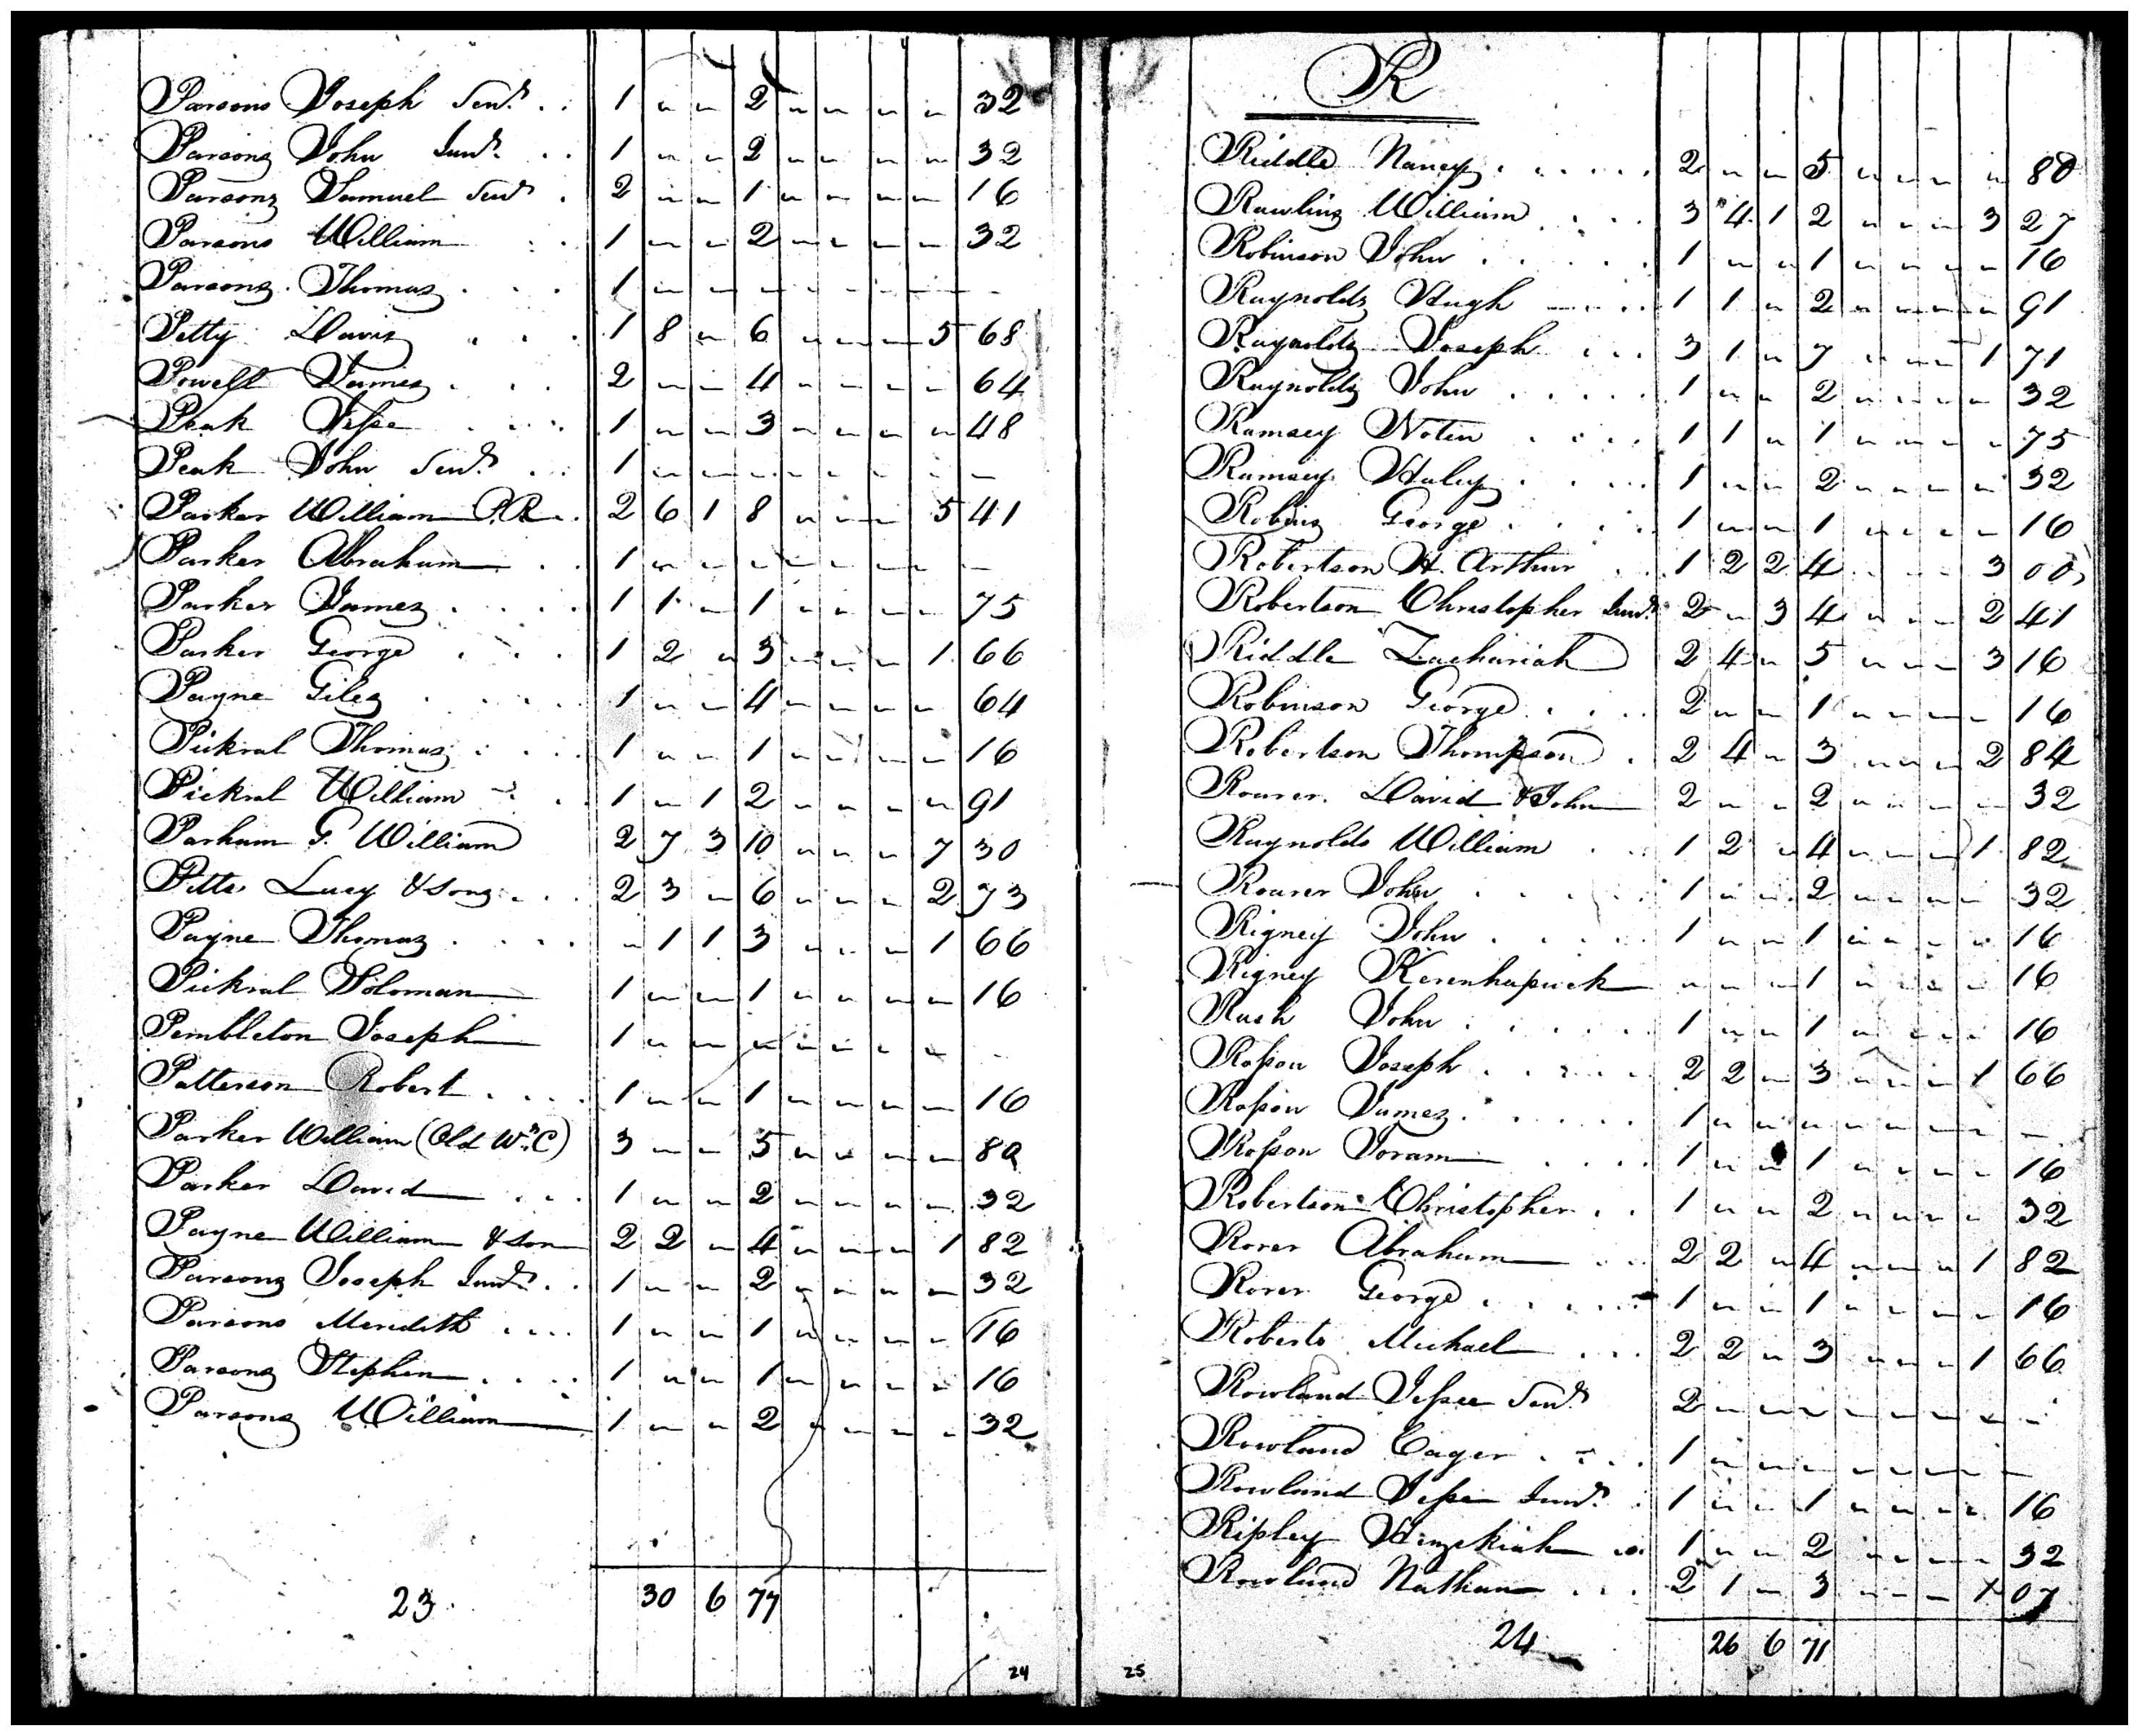 Parsons Joseph Senr. . . 1 " " 2 " " " " 32
Parsons John Junr. . . 1 " " 2 " " " " 32
Parsons Samuel Senr . 2 " " 1 " " " " 16
Parsons William . . 1 " " 2 " " " " 32
Parsons Thomas . . . 1 " " " " " " " "
Petty Davis . . . 1 8 " 6 " " " 5 68
Powell James . . . 2 " " 4 " " " " 64
Peak Jesse . . . 1 " " 3 " " " " 48
Peak John Senr. . . 1 " " " " " " " "
Parker William P.R . 2 6 1 8 " " " 5 41
Parker Abraham . . 1 " " " " " " " "
Parker James . . . . 1 1 " 1 " " " " 75
Parker George . . . 1 2 " 3 " " " 1 66
Payne Giles . . . . 1 " " 4 " " " " 64
Pickral Thomas . . . 1 " " 1 " " " " 16
Pickral William . . 1 " 1 2 " " " " 91
Parham G. William 2 7 3 10 " " " 7 30
Pitts Lucy & sons . . . 2 3 " 6 " " " 2 73
Payne Thomas . . . . " 1 1 3 " " " 1 66
Pickral Soloman 1 " " 1 " " " " 16
Pembleton Joseph 1 " " " " " " " "
Patterson Robert . . . . 1 " " 1 " " " " 16
Parker William (Old Wm. C) 3 " " 5 " " " " 80
Parker David . . . 1 " " 2 " " " " 32
Payne William & son 2 2 " 4 " " " 1 82
Parsons Joseph Junr. . . 1 " " 2 " " " " 32
Parsons Meridith . . . . 1 " " 1 " " " " 16
Parsons Stephen . . . . 1 " " 1 " " " " 16
Parsons William 1 " " 2 " " " " 32
23 30 6 77
24
R
Riddle Nancy . . . . . 2 " " 5 " " " " 80
Rawlins William . . . 3 4 1 2 " " " 3 27
Robinson John . . . . . 1 " " 1 " " " " 16
Raynolds Hugh . . . 1 1 " 2 " " " " 91
Raynolds Joseph . . . 3 1 " 7 " " " 1 71
Raynolds John . . . . . 1 " " 2 " " " " 32
Ramsey Noten . . . . 1 1 " 1 " " " " 75
Ramsey Haley . . . . 1 " " 2 " " " " 32
Robins George . . . . 1 " " 1 " " " " 16
Robertson H. Arthur . . 1 2 2 4 " " " 3 00
Robertson Christopher Junr. 2 " 3 4 " " " 2 41
Riddle Zachariah 2 4 " 5 " " " 3 16
Robinson George . . . . 2 " " 1 " " " " 16
Robertson Thompson . 2 4 " 3 " " " 2 84
Rourer David & John 2 " " 2 " " " " 32
Raynolds William . . . 1 2 " 4 " " " 1 82
Rourer John . . . . . 1 " " 2 " " " " 32
Rigney John . . . . . 1 " " 1 " " " " 16
Rigney Kerenhapuck " " " 1 " " " " 16
Rush John . . . . . . 1 " " 1 " " " " 16
Rosson Joseph . . . . . 2 2 " 3 " " " 1 66
Rosson James . . . . . . 1 " " " " " " " "
Rosson Joram . . . . 1 " " 1 " " " " 16
Robertson Christopher . . 1 " " 2 " " " " 32
Rorer Abraham . . 2 2 " 4 " " " 1 82
Rorer George . . . . . 1 " " 1 " " " " 16
Roberts Michael . . . 2 2 " 3 " " " 1 66
Rowland Jesse Senr. 2 " " " " " " " "
Rowland Cager . . . . 1 " " " " " " " "
Rowland Jesse Junr. . 1 " " 1 " " " " 16
Ripley Hezekiah . . 1 " " 2 " " " " 32
Rowland Nathan . . . 2 1 " 3 " " " 1 07
24 26 6 71
25